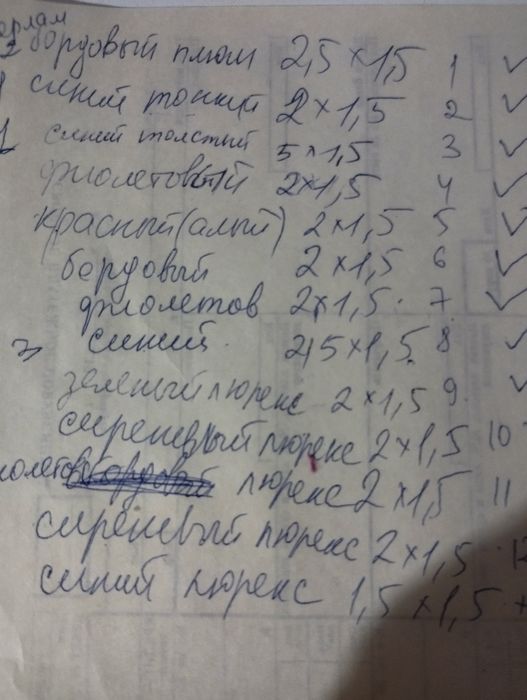 орлам
бордовый плюш 2,5 × 1,5 1 ✓
синий тонкий 2 × 1,5 2 ✓
синий толстый 5 × 1,5 3 ✓
фиолетовый 2 × 1,5 4 ✓
красный (алый) 2 × 1,5 5 ✓
бордовый 2 × 1,5 6 ✓
фиолетов 2 × 1,5. 7 ✓
синий. 2,5 × 1,5. 8 ✓
зеленый люрекс 2 × 1,5 9 ✓
сиреневый люрекс 2 × 1,5 10
иолетов люрекс 2 × 1,5 11
сиреневый люрекс 2 × 1,5 12
синий люрекс 1,5 × 1,5.